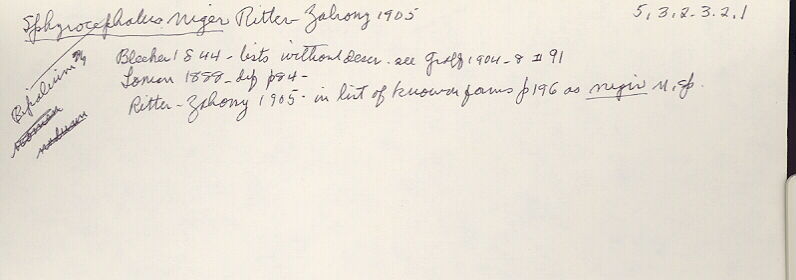 Sphyrocephalus niger Ritter-Zahony 1905
5,3,2-3.2,1
Bleeker 1844 - lists without descr. see Graff 1904-8 # 91
Loman 1888 - dif p84 -
Ritter-Zahony 1905 - in list of known forms p196 as niger n.sp.
Bipalium